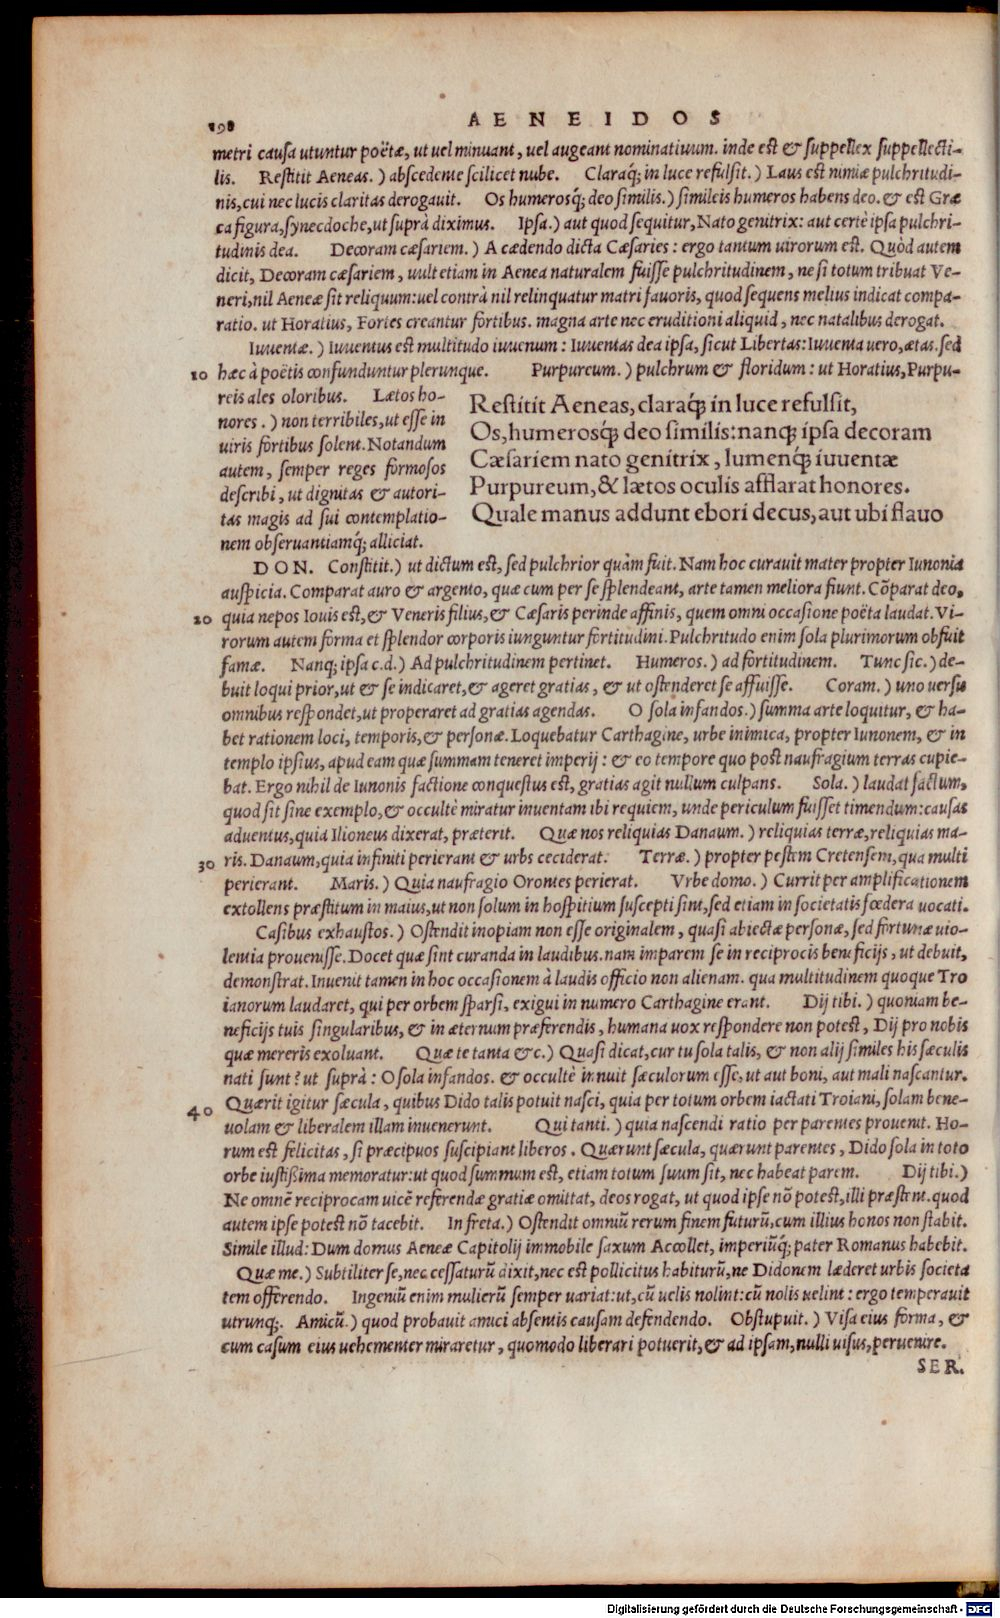 198 AENEIDOS
metri causa utuntur poëtæ, ut uel minuant, uel augeant nominatiuum. inde est & suppellex suppellecti-
lis. Restitit Aeneas.) abscedente scilicet nube. Claraq́; in luce refulsit.) Laus est nimiæ pulchritudi-
nis, cui nec lucis claritas derogauit. Os humerosq́; deo similis.) simileis humeros habens deo. & est Græ
ca figura, synecdoche, ut suprà diximus. Ipsa.) aut quod sequitur, Nato genitrix: aut certè ipsa pulchri-
tudinis dea. Decoram cæsariem.) A cædendo dicta Cæsaries: ergo tantum uirorum est. Quòd autem
dicit, Decoram cæsariem, uult etiam in Aenea naturalem fuisse pulchritudinem, ne si totum tribuat Ve-
neri, nil Aeneæ sit reliquum: uel contrà nil relinquatur matri fauoris, quod sequens melius indicat compa-
ratio. ut Horatius, Fortes creantur fortibus. magna arte nec eruditioni aliquid, nec natalibus derogat.
Iuuentæ.) Iuuentus est multitudo iuuenum: Iuuentas dea ipsa, sicut Libertas: Iuuenta uero, ætas. sed
10 hæc à poëtis confunduntur plerunque. Purpureum.) pulchrum & floridum: ut Horatius, Purpu-
reis ales oloribus. Lætos ho-
nores.) non terribiles, ut esse in
uiris fortibus solent. Notandum
autem, semper reges formosos
describi, ut dignitas & autori-
tas magis ad sui contemplatio-
nem obseruantiamq́; alliciat.
Restitit Aeneas, claraq́; in luce refulsit,
Os, humerosq́; deo similis: nanq; ipsa decoram
Cæsariem nato genitrix, lumenq́; iuuentæ
Purpureum, & lætos oculis afflarat honores.
Quale manus addunt ebori decus, aut ubi flauo
DON. Constitit.) ut dictum est, sed pulchrior quàm fuit. Nam hoc curauit mater propter Iunonia
auspicia. Comparat auro & argento, quæ cum per se splendeant, arte tamen meliora fiunt. Cõparat deo,
20 quia nepos Iouis est, & Veneris filius, & Cæsaris perinde affinis, quem omni occasione poëta laudat. Vi-
rorum autem forma et splendor corporis iunguntur fortitudini. Pulchritudo enim sola plurimorum obfuit
famæ. Nanq; ipsa c.d.) Ad pulchritudinem pertinet. Humeros.) ad fortitudinem. Tunc sic.) de-
buit loqui prior, ut & se indicaret, & ageret gratias, & ut ostenderet se affuisse. Coram.) uno uersu
omnibus respondet, ut properaret ad gratias agendas. O sola infandos.) summa arte loquitur, & ha-
bet rationem loci, temporis, & personæ. Loquebatur Carthagine, urbe inimica, propter Iunonem, & in
templo ipsius, apud eam quæ summam teneret imperij: & eo tempore quo post naufragium terras cupie-
bat. Ergo nihil de Iunonis factione conquestus est, gratias agit nullum culpans. Sola.) laudat factum,
quod sit sine exemplo, & occultè miratur inuentam ibi requiem, unde periculum fuisset timendum: causas
aduentus, quia Ilioneus dixerat, præterit. Quæ nos reliquias Danaum.) reliquias terræ, reliquias ma-
30 ris. Danaum, quia infiniti perierant & urbs ceciderat. Terræ.) propter pestem Cretensem, qua multi
perierant. Maris.) Quia naufragio Orontes perierat. Vrbe domo.) Currit per amplificationem
extollens præstitum in maius, ut non solum in hospitium suscepti sint, sed etiam in societatis fœdera uocati.
Casibus exhaustos.) Ostendit inopiam non esse originalem, quasi abiectæ personæ, sed fortunæ uio-
lentia prouenisse. Docet quæ sint curanda in laudibus. nam imparem se in reciprocis beneficijs, ut debuit,
demonstrat. Inuenit tamen in hoc occasionem à laudis officio non alienam. qua multitudinem quoque Tro
ianorum laudaret, qui per orbem sparsi, exigui in numero Carthagine erant. Dij tibi.) quoniam be-
neficijs tuis singularibus, & in æternum præferendis, humana uox respondere non potest, Dij pro nobis
quæ mereris exoluant. Quæ te tanta &c.) Quasi dicat, cur tu sola talis, & non alij similes his sæculis
nati sunt? ut suprà: O sola infandos. & occultè innuit sæculorum esse, ut aut boni, aut mali nascantur.
40 Quærit igitur sæcula, quibus Dido talis potuit nasci, quia per totum orbem iactati Troiani, solam bene-
uolam & liberalem illam inuenerunt. Qui tanti.) quia nascendi ratio per parentes prouenit. Ho-
rum est felicitas, si præcipuos suscipiant liberos. Quærunt sæcula, quærunt parentes, Dido sola in toto
orbe iustißima memoratur: ut quod summum est, etiam totum suum sit, nec habeat parem. Dij tibi.)
Ne omnẽ reciprocam uicẽ referendæ gratiæ omittat, deos rogat, ut quod ipse nõ potest, illi præstent. quod
autem ipse potest nõ tacebit. In freta.) Ostendit omniũ rerum finem futurũ, cum illius honos non stabit.
Simile illud: Dum domus Aeneæ Capitolij immobile saxum Accollet, imperiũq́; pater Romanus habebit.
Quæ me.) Subtiliter se, nec cessaturũ dixit, nec est pollicitus habiturũ, ne Didonem læderet urbis societa
tem offerendo. Ingeniũ enim mulierũ semper uariat: ut, cũ uelis nolint: cũ nolis uelint: ergo temperauit
utrunq;. Amicũ.) quod probauit amici absentis causam defendendo. Obstupuit.) Visa eius forma, &
cum casum eius uehementer miraretur, quomodo liberari potuerit, & ad ipsam, nulli uisus, peruenire.
SER.
Digitalisierung gefördert durch die Deutsche Forschungsgemeinschaft - DFG